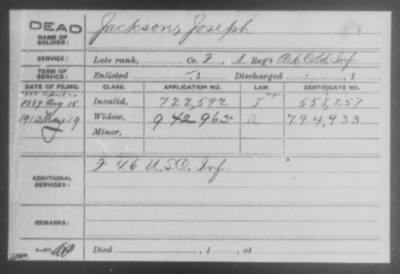 DEAD
NAME OF SOLDIER: Jackson, Joseph
SERVICE: Late rank, Co. F, 1 Reg't Ark Cold. Inf.
TERM OF SERVICE: Enlisted , 1 Discharged , 1
DATE OF FILING. CLASS. APPLICATION NO. LAW. CERTIFICATE NO.
1889 Aug 15 Invalid, 722,592 558,257
1910 May 19 Widow, 942,962 794,933
Minor,
ADDITIONAL SERVICES: F 46 U.S.C. Inf.
REMARKS:
Died , 1 , at